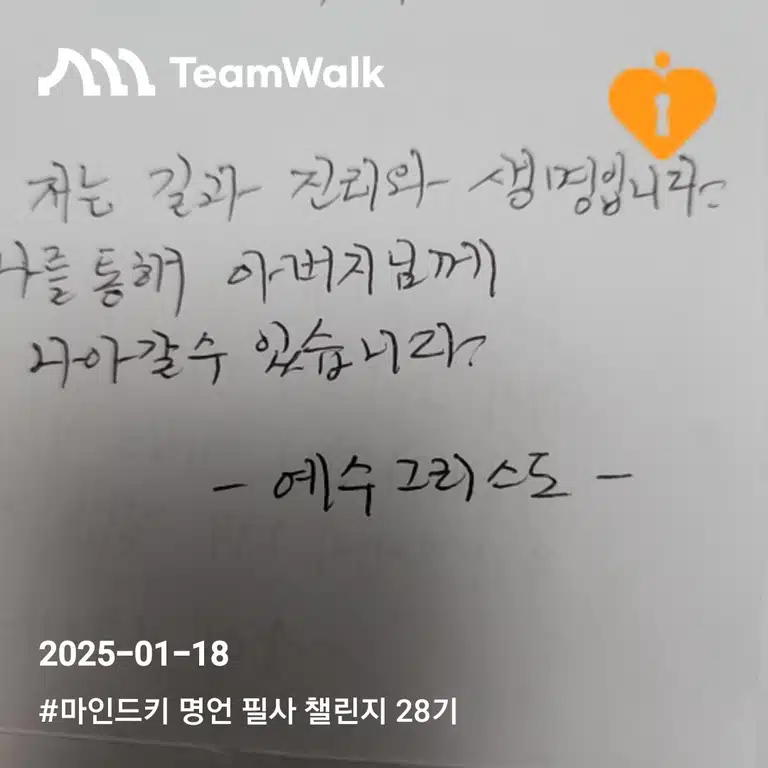 TeamWalk
저는 길과 진리와 생명입니다.
나를 통해 아버지님께
나아갈수 있습니다.
- 예수그리스도 -
2025-01-18
#마인드키 명언 필사 챌린지 28기